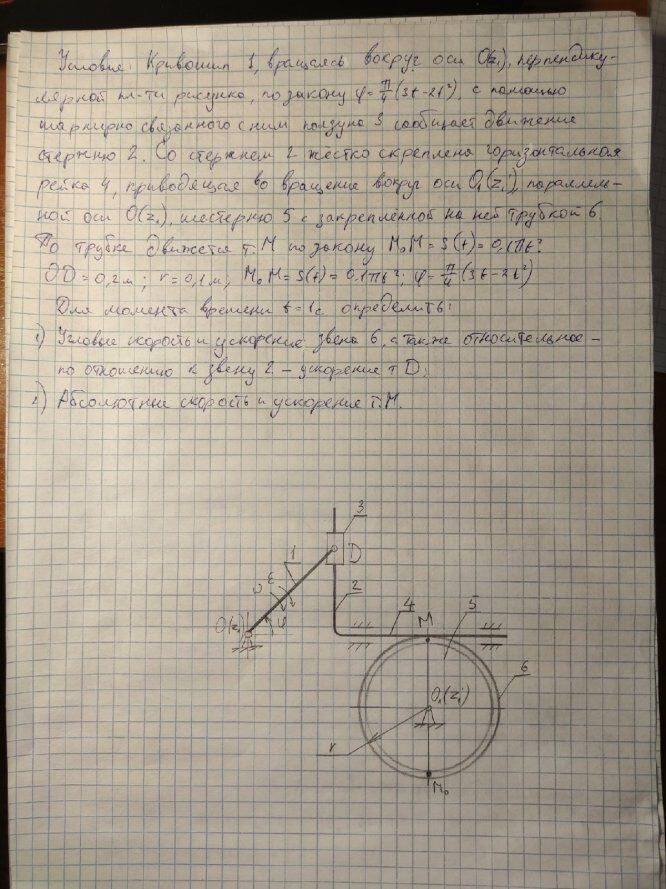 Условие: Кривошип 1, вращаясь вокруг оси O(z₁), перпендику-
лярной пл-ти рисунка, по закону φ = π/4 (3t - 2t²), с помощью
шарнирно связанного с ним ползуна 3 сообщает движение
стержню 2. Со стержнем 2 жёстко скреплена горизонтальная
рейка 4, приводящая во вращение вокруг оси O₁(z₁'), параллель-
ной оси O(z₁), шестерню 5 с закреплённой на ней трубкой 6.
По трубке движется т. M по закону M₀M = S(t) = 0,1πt².
OD = 0,2 м; r = 0,1 м; M₀M = S(t) = 0,1πt²; φ = π/4 (3t - 2t²)
Для момента времени t = 1с определить:
1) Угловые скорость и ускорение звена 6, а также относительное -
по отношению к звену 2 - ускорение т D;
2) Абсолютные скорость и ускорение т. M.
3
1
D
ε
ω
2
O(z₁)
φ
4
M
5
6
O₁(z₁')
r
M₀